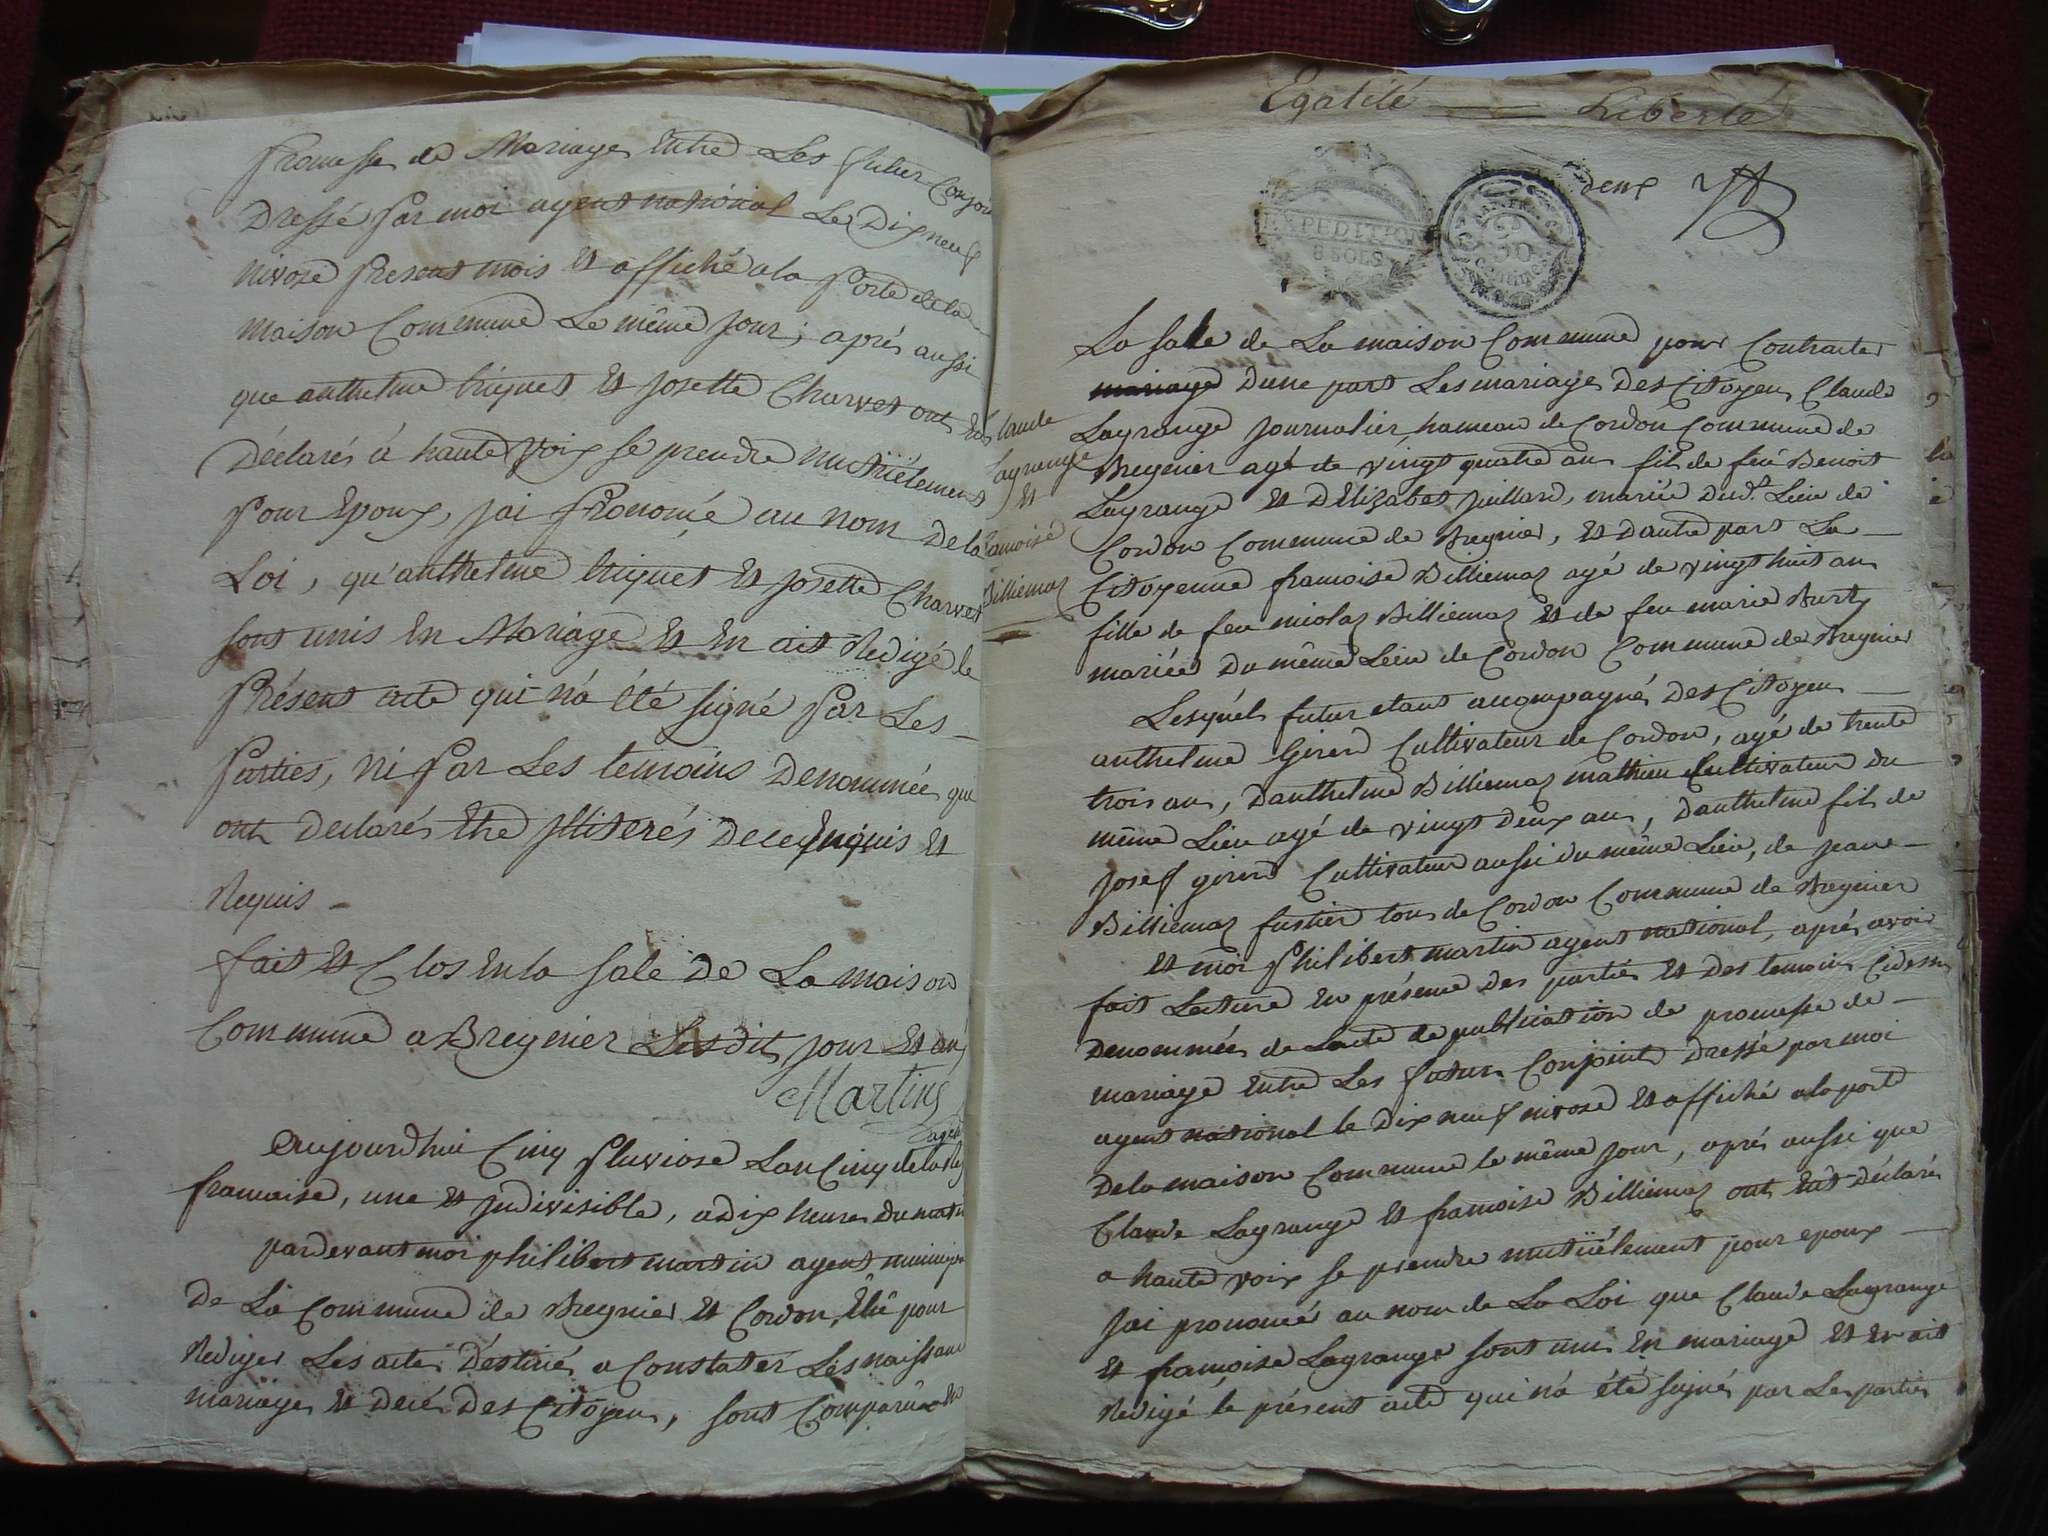 promesse de Mariage Entre Les futur Conjoin
Dressé par moi agent national Le Dix neuf
nivose present mois et affiché ala porte dela
maison Commune Le même jour ; aprés aussi
que anthelme triquet Et josette Charvet ont Eus
Déclarés à haute Voix se prendre mutuélement
pour Epoux, jai prononcé au nom Dela
Loi, qu'anthelme triquet Et josette Charvet
sont unis En Mariage Et En ait Redigé le
présent acte qui n'a été signé par Les
parties, ni par Les temoins Denommée que
ont Declarés Etre jlliterés Dece Enquis Et
Requis
fait Et Clos En la sale De La maison
Commune a Bregnier Lesdit jour Et an
Martin
agent
Aujourdhui Cinq pluviose Lan Cinq de la Rep
francaise, une Et jndivisible, a dix heures du matin
pardevant moi philibert martin agent municipa
De La Commune de Bregnier Et Cordon, Elû pour
Rediger Les actes Déstiné a Constater Les naissance
mariage Et Decé Des Citoyen, sont Comparû En
Egalité Liberté
EXPEDITION
8 SOLS
50
Centimes
deux
Claude
Lagrange
Et
francoise
Billiemaz
La sale de La maison Commune pour Contracter
mariage Dune part Les mariage Des Citoyen Claude
Lagrange journalier hameau de Cordon Commune de
Bregnier agé de vingt quatre an fils de feu Benoit
Lagrange Et D'Elizabet juillard, mariée dud.t Lieu de
Cordon Commune de Bregnier, Et Dautre part La
Citoyenne francoise Billiemaz agé de vingt huit an
fille de feu nicolas Billiemaz Et de feu marie Burty
mariée Du même Lieu de Cordon Commune de Bregnier
Lesquels futur etant accompagné Des Citoyen
anthelme Girerd Cultivateur de Cordon, agé de trente
trois an, Danthelme Billiemaz mathieu Cultivateur du
même Lieu agé de vingt Deux an, Danthelme fils de
josef girerd Cultivateur aussi du même Lieu, de jean
Billiemaz fustier tous de Cordon Commune de Bregnier
Et moi philibert martin agent national, aprés avoir
fait Lecture En présence Des partiés Et Des temoins Cidessu
Denommée de Lacte de publication de promesse de
mariage Entre Les futurs Conjoint Dressé par moi
agent national le Dix neuf nivose Et affiché ala porte
De la maison Commune le même jour, aprés aussi que
Claude Lagrange Et francoise Billiemaz ont Eus déclaré
a haute voix se prendre mutuélement pour epoux
jai prononcé au nom de La Loi que Claude Lagrange
Et francoise Lagrange sont uni En mariage Et En ait
Redigé le présent acte qui n'a été signé par Les parties